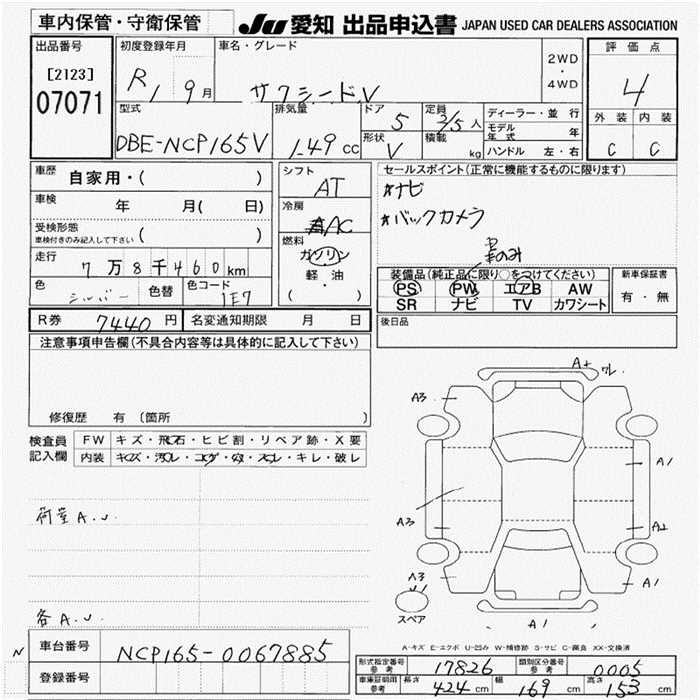 車内保管・守衛保管
JU 愛知 出品申込書 JAPAN USED CAR DEALERS ASSOCIATION
出品番号
[2123]
07071
初度登録年月
R1 9月
車名・グレード
サクシードV
2WD
・
4WD
評価点
4
外装 内装
C C
型式
DBE-NCP165V
排気量
1.49cc
ドア
5
定員
2/5人
形状
V
積載
kg
ディーラー・並行
モデル年式 年
ハンドル 左・右
車歴 自家用・( )
車検 年 月( 日)
受検形態
車検付きのみ記入して下さい ( )
走行 7万8千460km
色 シルバー 色替 色コード 1E7
シフト
AT
冷房
AC
燃料
ガソリン
軽・油
( )
セールスポイント(正常に機能するものに限ります)
★ナビ
★バックカメラ
装備品(純正品に限り○をつけてください)
PS PW エアB AW
SR ナビ TV カワシート
新車保証書
有・無
R券 7440円 名変通知期限 月 日
後日品
注意事項申告欄(不具合内容等は具体的に記入して下さい)
修復歴 有 (箇所 )
検査員記入欄
FW キズ・飛石・ヒビ割・リペア跡・X要
内装 キズ・汚レ・コゲ・穴・スレ・キレ・破レ
荷室A.U.
各A.U.
A2 ワレ
A3
A1
A3
A2
A3
A1
A1
スペア
A-キズ E-エクボ U-凹み W-補修跡 S-サビ C-腐食 XX-交換済
N
車台番号 NCP165-0067885
登録番号
形式指定番号 参考 17826 類別区分番号 参考 0005
車庫証明用 参考 長さ 424cm 幅 169cm 高さ 153cm